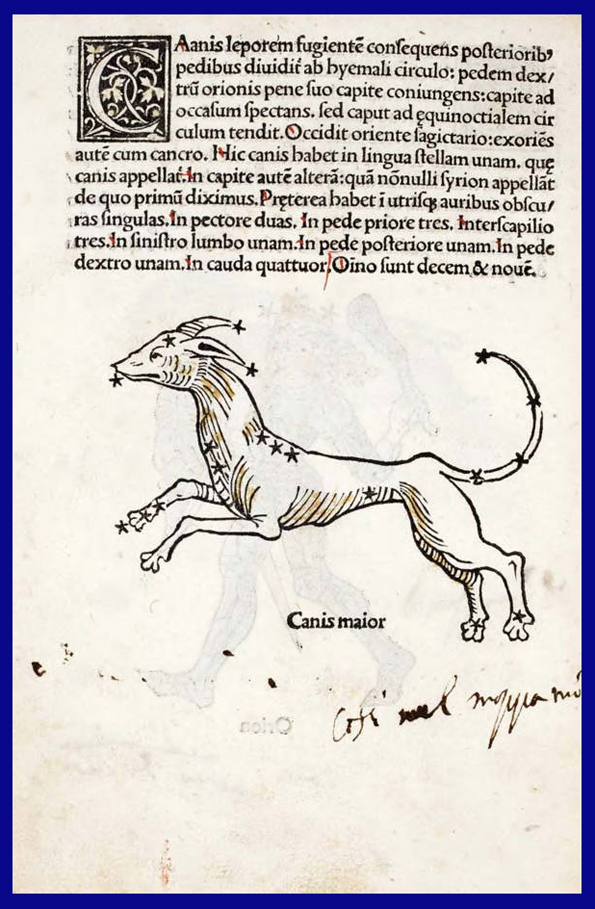 CAanis leporem fugientē consequens posterioribꝰ
pedibus diuidit̃ ab hyemali circulo: pedem dex/
trū orionis pene suo capite coniungens: capite ad
occasum spectans. sed caput ad ęquinoctialem cir
culum tendit. Occidit oriente sagictario: exoriēs
autē cum cancro. Hic canis habet in lingua stellam unam. quę
canis appellat̃. In capite autē alterā: quā nōnulli syrion appellāt
de quo primū diximus. Pręterea habet ī utrisqꝫ auribus obscu/
ras singulas. In pectore duas. In pede priore tres. Interscapilio
tres. In sinistro lumbo unam. In pede posteriore unam. In pede
dextro unam. In cauda quattuor. Oīno sunt decem & nouē.
Canis maior
Orion